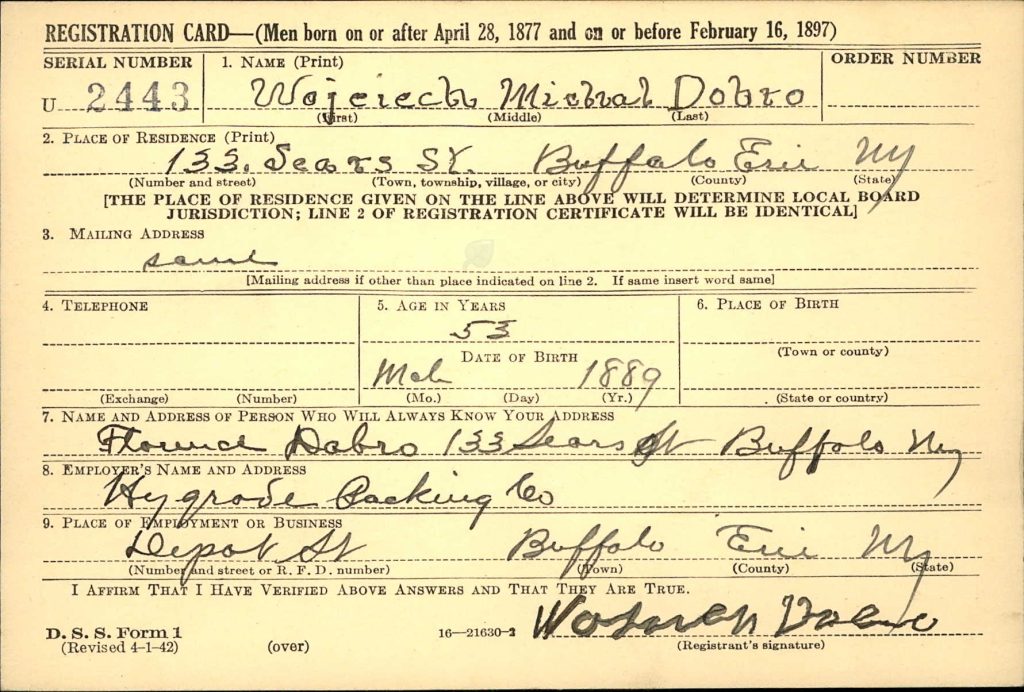 REGISTRATION CARD—(Men born on or after April 28, 1877 and on or before February 16, 1897)
SERIAL NUMBER
1. NAME (Print)
ORDER NUMBER
U 2443
Wojciech Michal Dobro
(First) (Middle) (Last)
2. PLACE OF RESIDENCE (Print)
133. Sears St. Buffalo Erie NY
(Number and street) (Town, township, village, or city) (County) (State)
[THE PLACE OF RESIDENCE GIVEN ON THE LINE ABOVE WILL DETERMINE LOCAL BOARD
JURISDICTION; LINE 2 OF REGISTRATION CERTIFICATE WILL BE IDENTICAL]
3. MAILING ADDRESS
same
[Mailing address if other than place indicated on line 2. If same insert word same]
4. TELEPHONE
5. AGE IN YEARS
6. PLACE OF BIRTH
53
(Town or county)
DATE OF BIRTH
Mch 1889
(Exchange) (Number)
(Mo.) (Day) (Yr.)
(State or country)
7. NAME AND ADDRESS OF PERSON WHO WILL ALWAYS KNOW YOUR ADDRESS
Florence Dobro 133 Sears St Buffalo NY
8. EMPLOYER'S NAME AND ADDRESS
Hygrade Packing Co
9. PLACE OF EMPLOYMENT OR BUSINESS
Depot St Buffalo Erie NY
(Number and street or R. F. D. number) (Town) (County) (State)
I AFFIRM THAT I HAVE VERIFIED ABOVE ANSWERS AND THAT THEY ARE TRUE.
D. S. S. Form 1
(Revised 4-1-42) (over)
16—21630-2
(Registrant's signature)